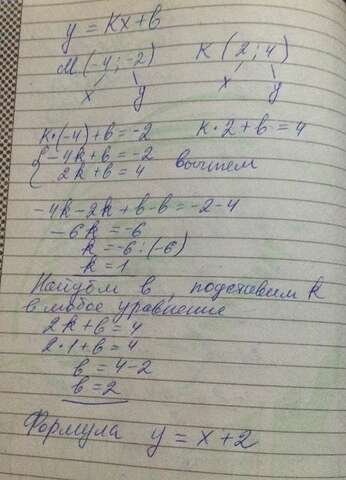 y = Kx + b
M (-4; -2) K (2; 4)
x y x y
k·(-4) + b = -2 k·2 + b = 4
{ -4k + b = -2
2k + b = 4 вычтем
-4k - 2k + b - b = -2 - 4
-6k = -6
k = -6 : (-6)
k = 1
Найдём b, подставим k
в любое уравнение
2k + b = 4
2·1 + b = 4
b = 4 - 2
b = 2
Формула y = x + 2